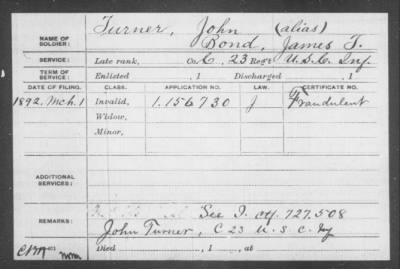 NAME OF SOLDIER: Turner, John (alias)
Bond, James T.
SERVICE: Late rank, Co. C, 23 Reg't U.S.C. Inf.
TERM OF SERVICE: Enlisted , 1 Discharged , 1
DATE OF FILING. CLASS. APPLICATION NO. LAW. CERTIFICATE NO.
1892, Mch. 1 Invalid, 1.156730 J Fraudulent
Widow,
Minor,
ADDITIONAL SERVICES:
REMARKS: See I. ctf. 727,508
John Turner, C 23 U.S.C. Inf
Died , 1 , at